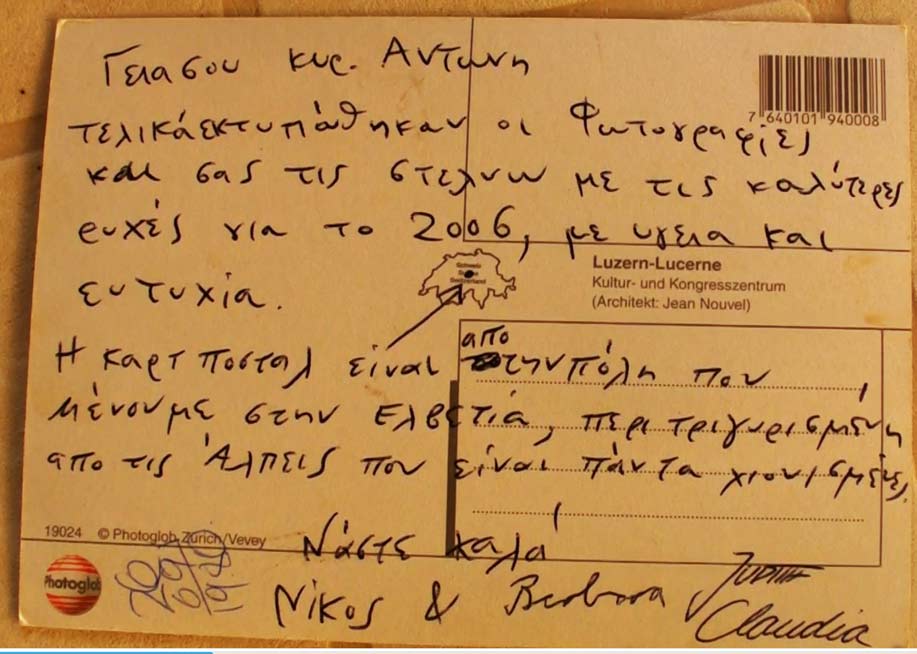 Γειασου κυρ. Αντωνη
τελικάεκτυπώθηκαν οι Φωτογραφίες
και σας τις στελνω με τις καλύτερες
ευχές για το 2006, με υγεια και
ευτυχία.
Η καρτ ποσταλ είναι απο την πόλη που
μένουμε στην Ελβετία, περιτριγυρισμένη
απο τις Άλπεις που είναι πάντα χιονισμένες.
Νάστε καλά
Νίκος & Barbara
JUDITH
Claudia
7 640101 940008
Schweiz
Switzerland
Luzern-Lucerne
Kultur- und Kongresszentrum
(Architekt: Jean Nouvel)
19024 © Photoglob Zürich/Vevey
Photoglob